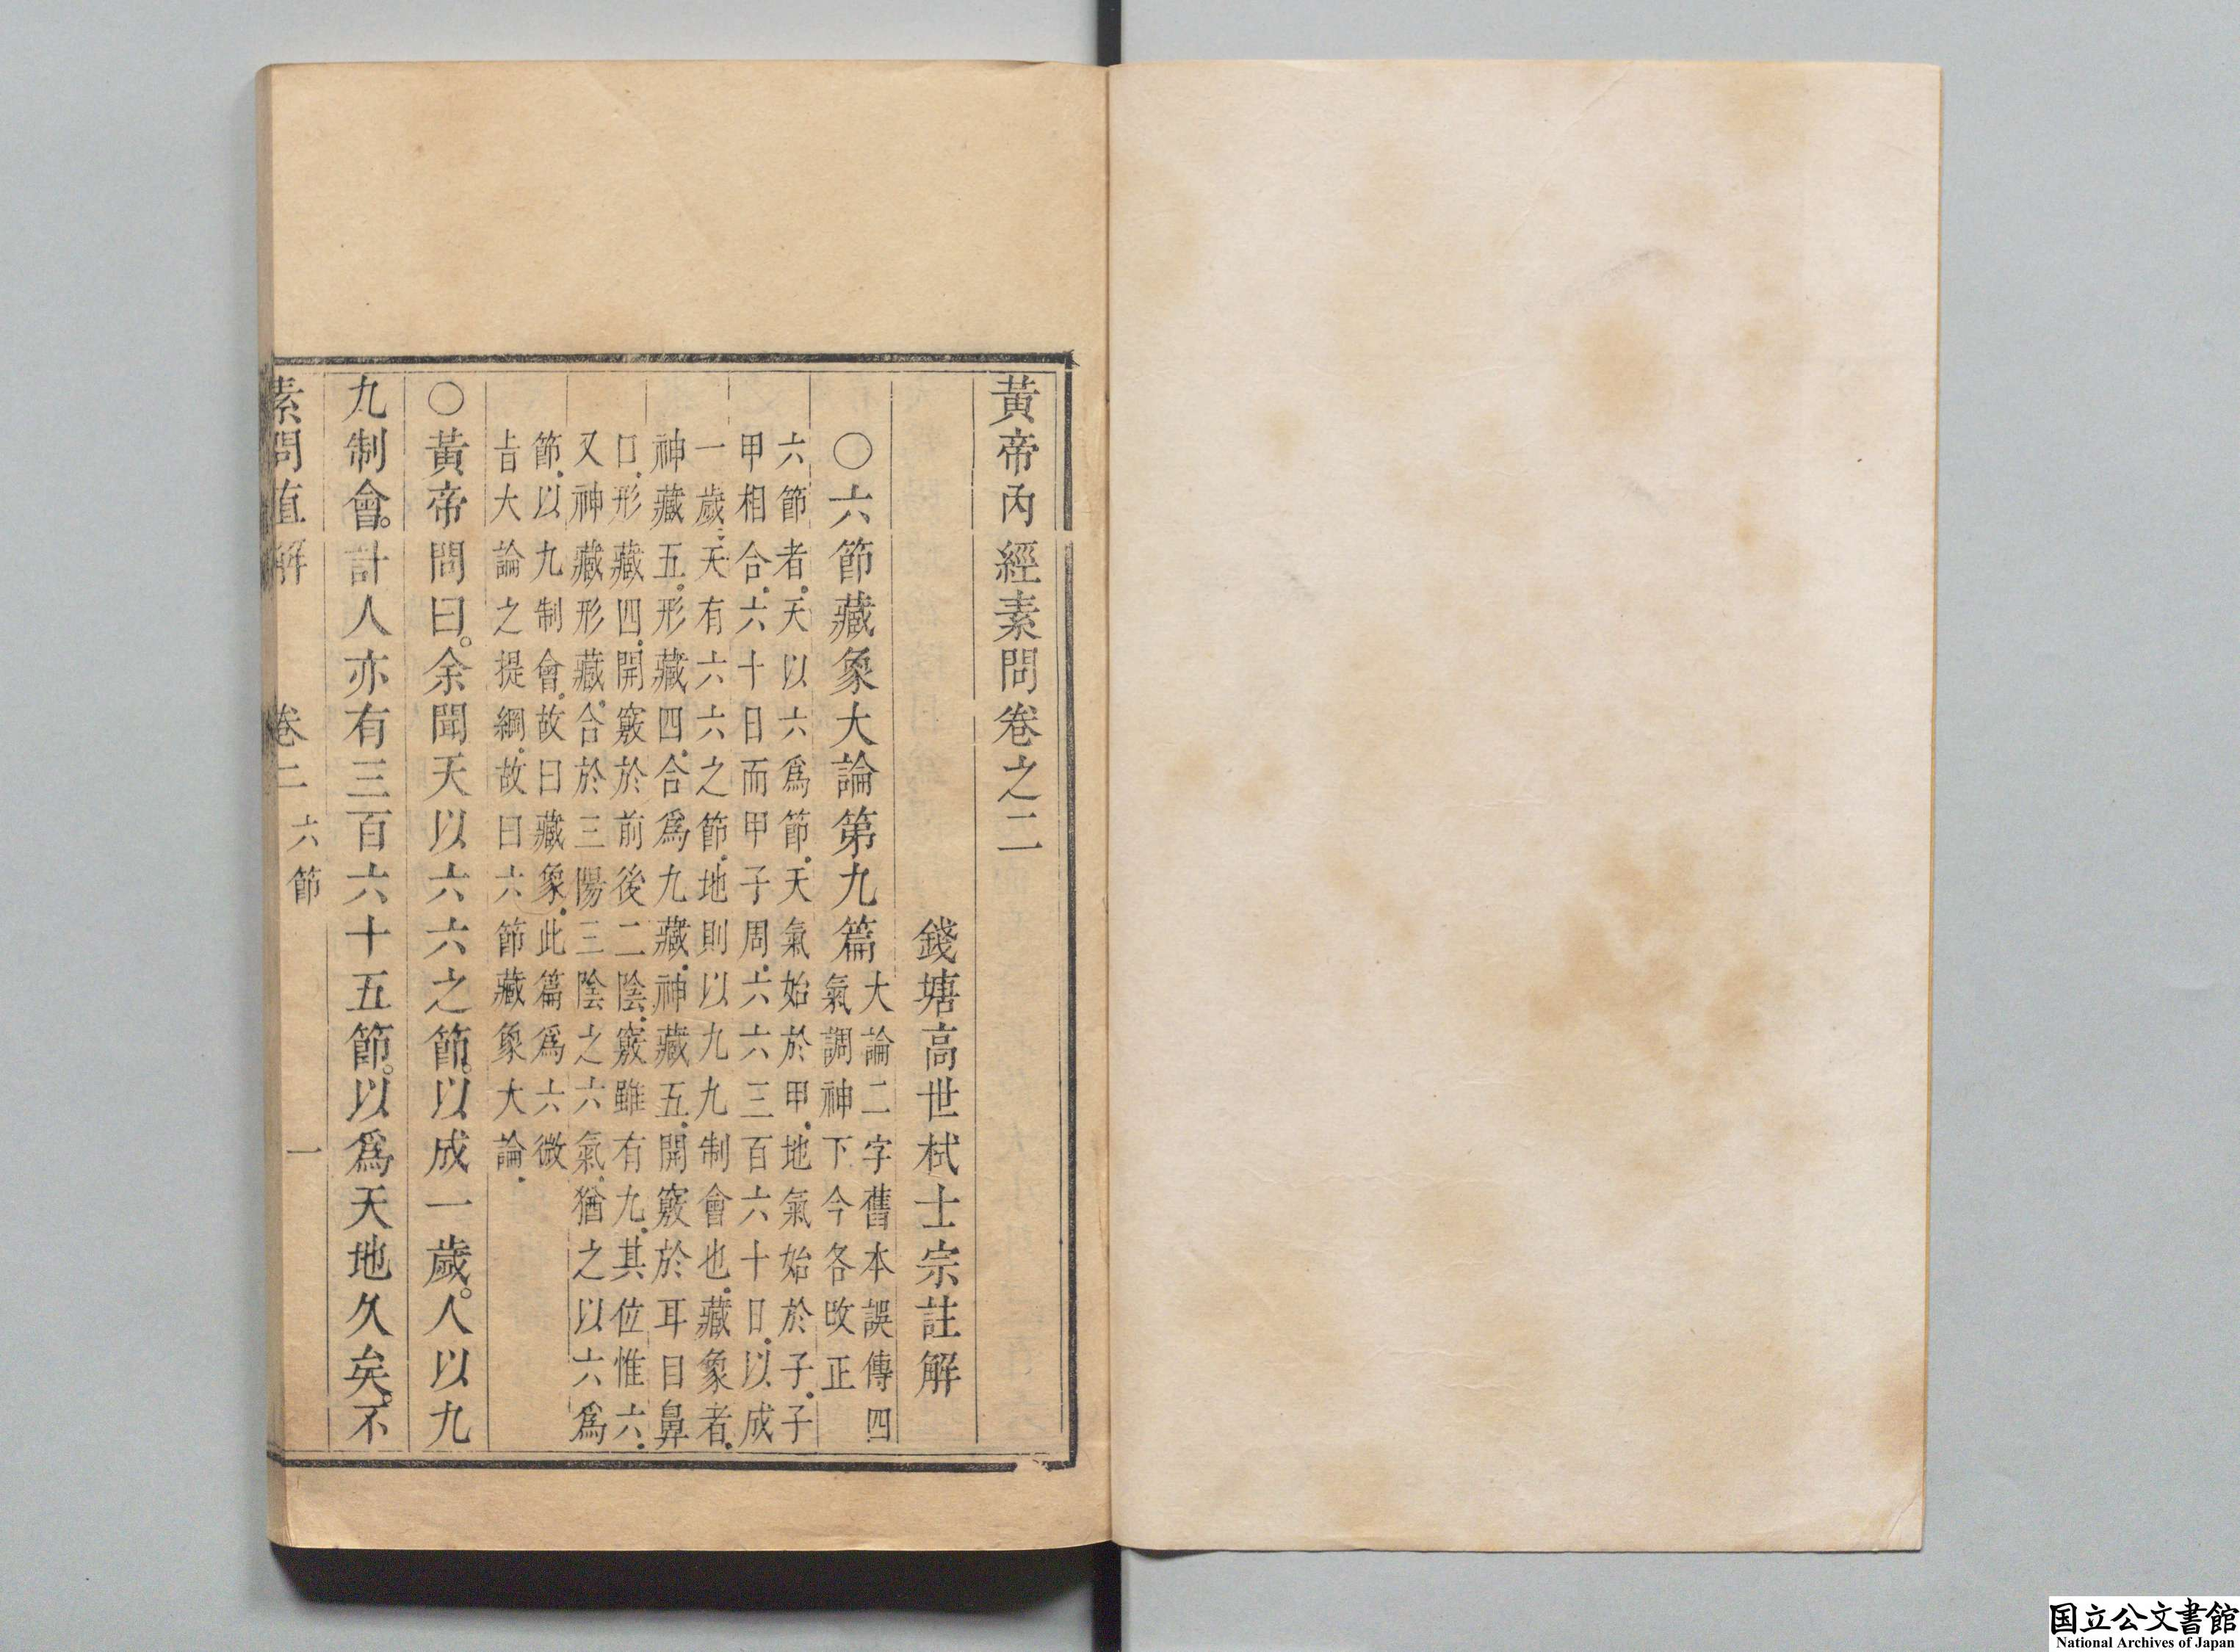 黃帝內經素問卷之二
錢塘高世栻士宗註解
○六節藏象大論第九篇
大論二字舊本誤傳四
氣調神下今各改正
六節者天以六爲節天氣始於甲地氣始於子子
甲相合六十日而甲子周六六三百六十日以成
一歲天有六六之節地則以九九制會也藏象者
神藏五形藏四合爲九藏神藏五開竅於耳目鼻
口形藏四開竅於前後二陰竅雖有九其位惟六
又神藏形藏合於三陽三陰之六氣猶之以六爲
節以九制會故曰藏象此篇爲六微
旨大論之提綱故曰六節藏象大論
○黃帝問曰余聞天以六六之節以成一歲人以九
九制會計人亦有三百六十五節以爲天地久矣不
素問直解 卷二 六節 一
国立公文書館
National Archives of Japan